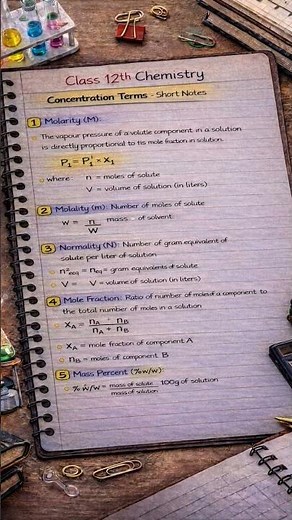 Class 12th Chemistry
Concentration Terms - Short Notes
1 Molarity (M):
The vapour pressure of a volatile component in a solution
is directly proportional to its mole fraction in solution.
P₁ = P₁° × x₁
where n = moles of solute
V = volume of solution (in liters)
2 Molality (m): Number of moles of solute
w = n/W mass of solvent
3 Normality (N): Number of gram equivalent of
solute per liter of solution
n²eq = neq = gram equivalents of solute
V = V = volume of solution (in liters)
4 Mole Fraction: Ratio of number of moles of a component to
the total number of moles in a solution
XA = nA ÷ nB / nA + nB
XA = mole fraction of component A
nB = moles of component B
5 Mass Percent (%w/w):
% w/w = mass of solute / mass of solution 100g of solution